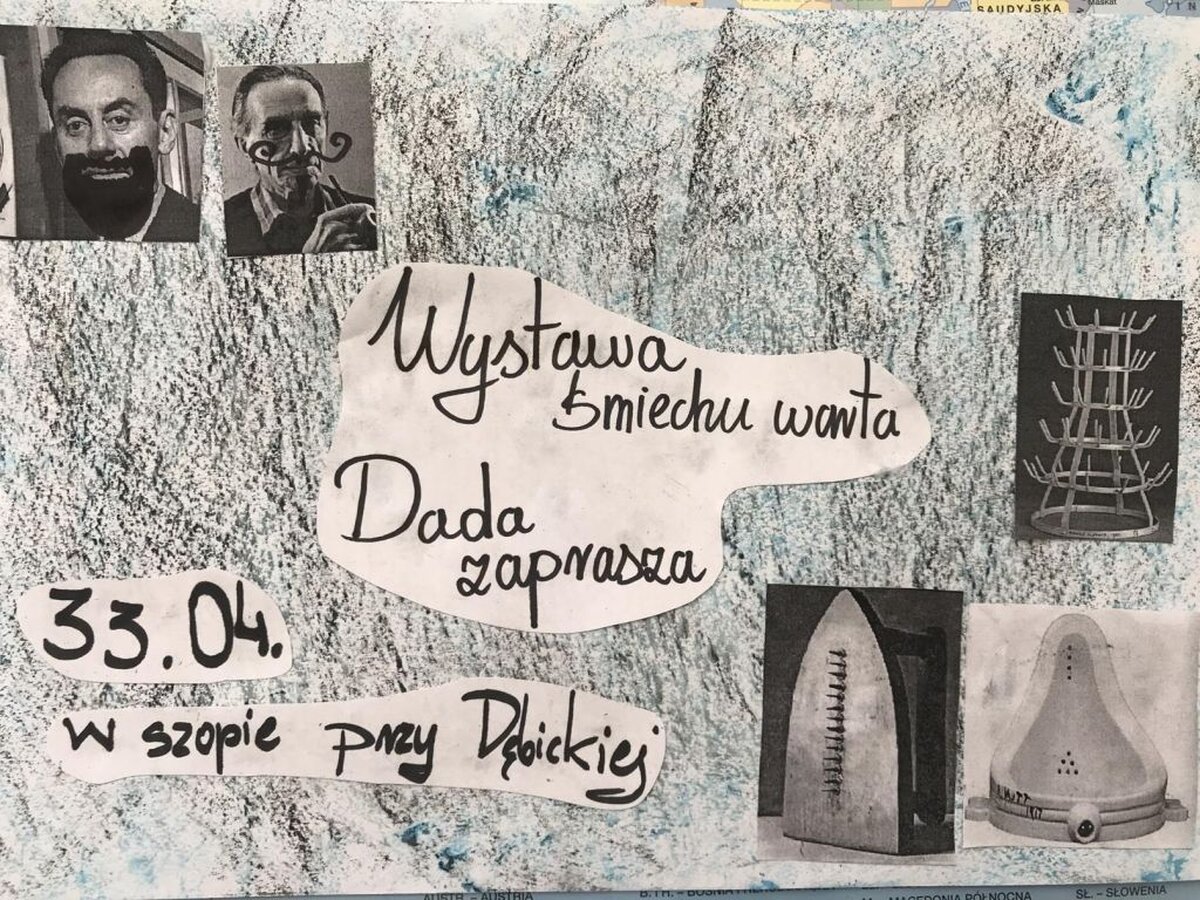 SAUDYJSKA
Maskat
Wystawa
śmiechu warta
Dada
zaprasza
33.04.
w szopie przy Dębickiej
R. MUTT
1917
AUSTR. – AUSTRIA
MACEDONIA PÓŁNOCNA
SŁ. – SŁOWENIA